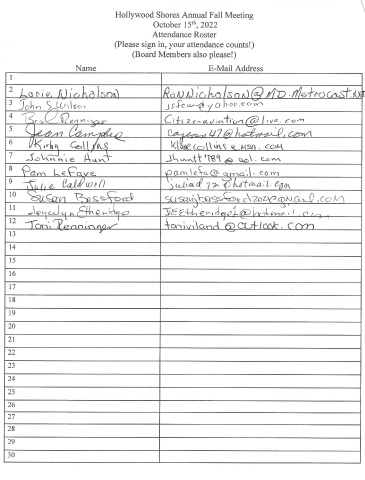 Hollywood Shores Annual Fall Meeting
October 15th, 2022
Attendance Roster
(Please sign in, your attendance counts!)
(Board Members also please!)
Name E-Mail Address
1
2 Nicholson RonNicholson@MD.Metrocast.Net
3 John S Wilson jsfcw@yahoo.com
4 Renninger Citizenaviation@live.com
5 Jean 47@hotmail.com
6 Kirby Collins
7 Johnnie Hunt jhuntt789@aol.com
8 Pam LeFave pamlefa@gmail.com
9 Julie Caldwell
10 Susan Bessford
11 Etheridge
12 Toni Renninger toniviland@outlook.com
13
14
15
16
17
18
19
20
21
22
23
24
25
26
27
28
29
30